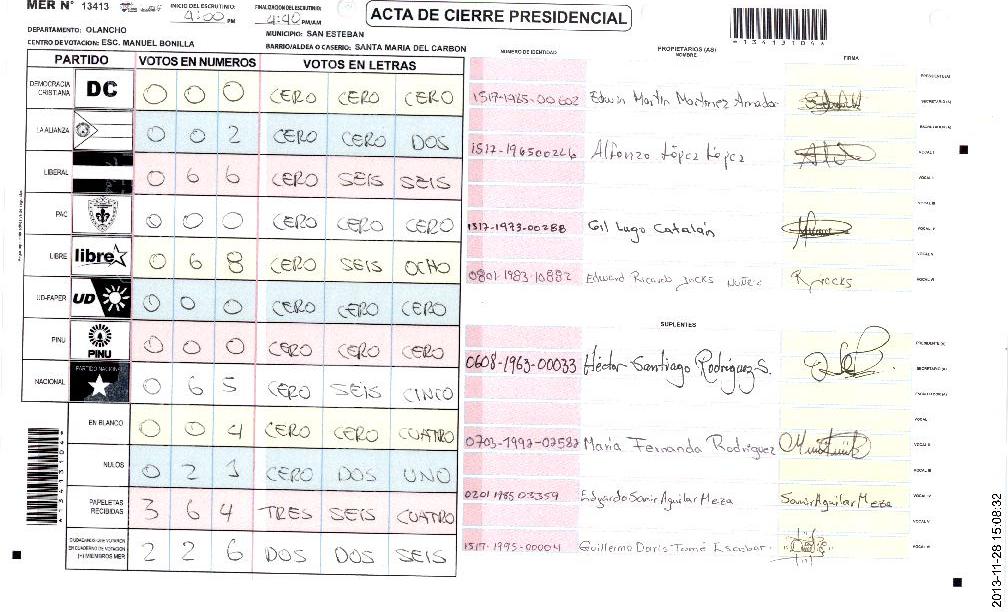 MER N° 13413
INICIO DEL ESCRUTINIO: 4:00 PM
FINALIZACION DEL ESCRUTINIO: 4:40 PM/AM
ACTA DE CIERRE PRESIDENCIAL
*134131046*
DEPARTAMENTO: OLANCHO
MUNICIPIO: SAN ESTEBAN
CENTRO DE VOTACION: ESC. MANUEL BONILLA
BARRIO/ALDEA O CASERIO: SANTA MARIA DEL CARBON
PARTIDO VOTOS EN NUMEROS VOTOS EN LETRAS
DEMOCRACIA CRISTIANA DC 0 0 0 CERO CERO CERO
LA ALIANZA 0 0 2 CERO CERO DOS
LIBERAL 0 6 6 CERO SEIS SEIS
PAC 0 0 0 CERO CERO CERO
LIBRE libre 0 6 8 CERO SEIS OCHO
UD-FAPER UD 0 0 0 CERO CERO CERO
PINU PINU 0 0 0 CERO CERO CERO
NACIONAL PARTIDO NACIONAL 0 6 5 CERO SEIS CINCO
EN BLANCO 0 0 4 CERO CERO CUATRO
NULOS 0 2 1 CERO DOS UNO
PAPELETAS RECIBIDAS 3 6 4 TRES SEIS CUATRO
CIUDADANOS QUE VOTARON EN CUADERNO DE VOTACION (+) MIEMBROS MER 2 2 6 DOS DOS SEIS
NUMERO DE IDENTIDAD PROPIETARIOS (AS) NOMBRE FIRMA
PRESIDENTE (A)
1517-1985-00602 Edwin Martin Martinez Amador SECRETARIO (A)
ESCRUTADOR (A)
1517-196500226 Alfonzo López López VOCAL I
VOCAL II
VOCAL III
1517-1973-00288 Gil Lugo Catalán VOCAL IV
VOCAL V
0801-1983-10882 Edward Ricardo Jacks Nuñez VOCAL VI
SUPLENTES
PRESIDENTE (A)
0608-1963-00033 Héctor Santiago Rodriguez S. SECRETARIO (A)
ESCRUTADOR (A)
VOCAL I
0703-1992-02582 Maria Fernanda Rodriguez VOCAL II
VOCAL III
0201 1985 03359 Edgardo Samir Aguilar Meza Samir Aguilar Meza VOCAL IV
VOCAL V
1517-1995-00004 Guillermo Doris Tomé Escobar VOCAL VI
2013-11-28 15:08:32